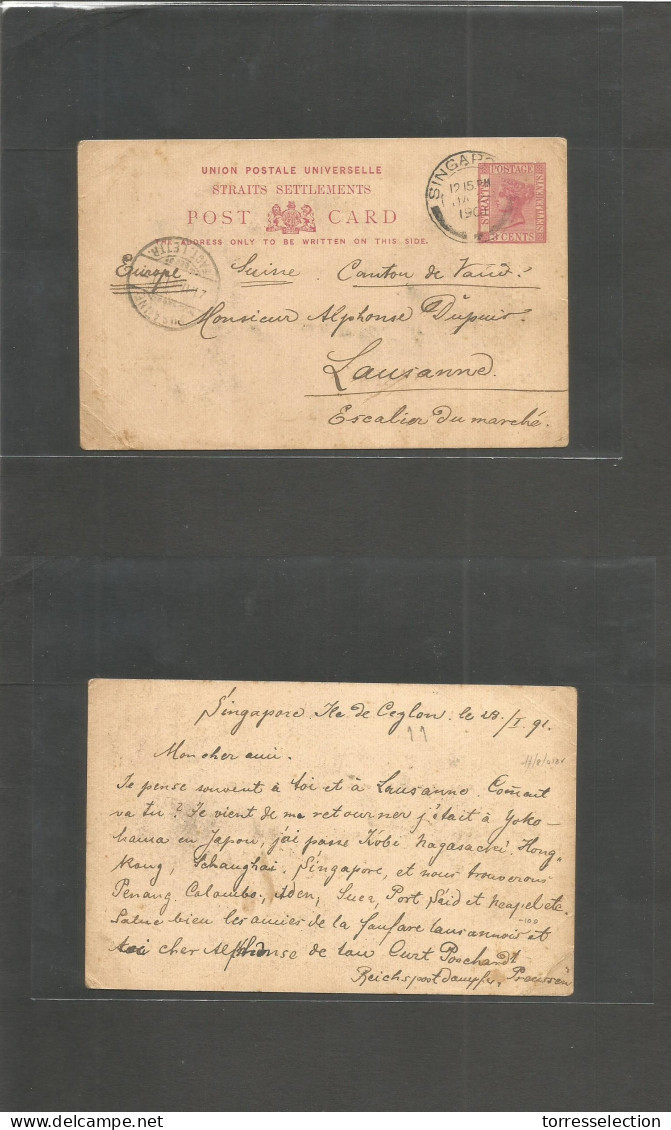 UNION POSTALE UNIVERSELLE
STRAITS SETTLEMENTS
POST CARD
THE ADDRESS ONLY TO BE WRITTEN ON THIS SIDE.
SINGAPO
12 15 PM
JA
190
POSTAGE
STRAITS
SETTLEMENTS
3 CENTS
Europe Suisse Canton de Vaud.
Monsieur Alphonse Dupuis.
Lausanne.
Escalier du marché.
Singapore Ile de Ceylon. le 28./I. 91.
11
Mon cher ami.
Je pense souvent à toi et à Lausanne. Comait
va tu? Je vient de me retourner j'était à Yoko-
hama en Japon, j'ai passe Kobi Nagasacki. Hong-
kong, Schanghai, Singapore, et nous trouverons
Penang. Colombo, Aden, Suez, Port Said et Neapel etc.
Salue bien les amies de la fanfare lausannois et
toi cher Alphonse de ton Curt Poschardt
Reichspostdampfer, Preussen
www.delcampe.net
torresselection